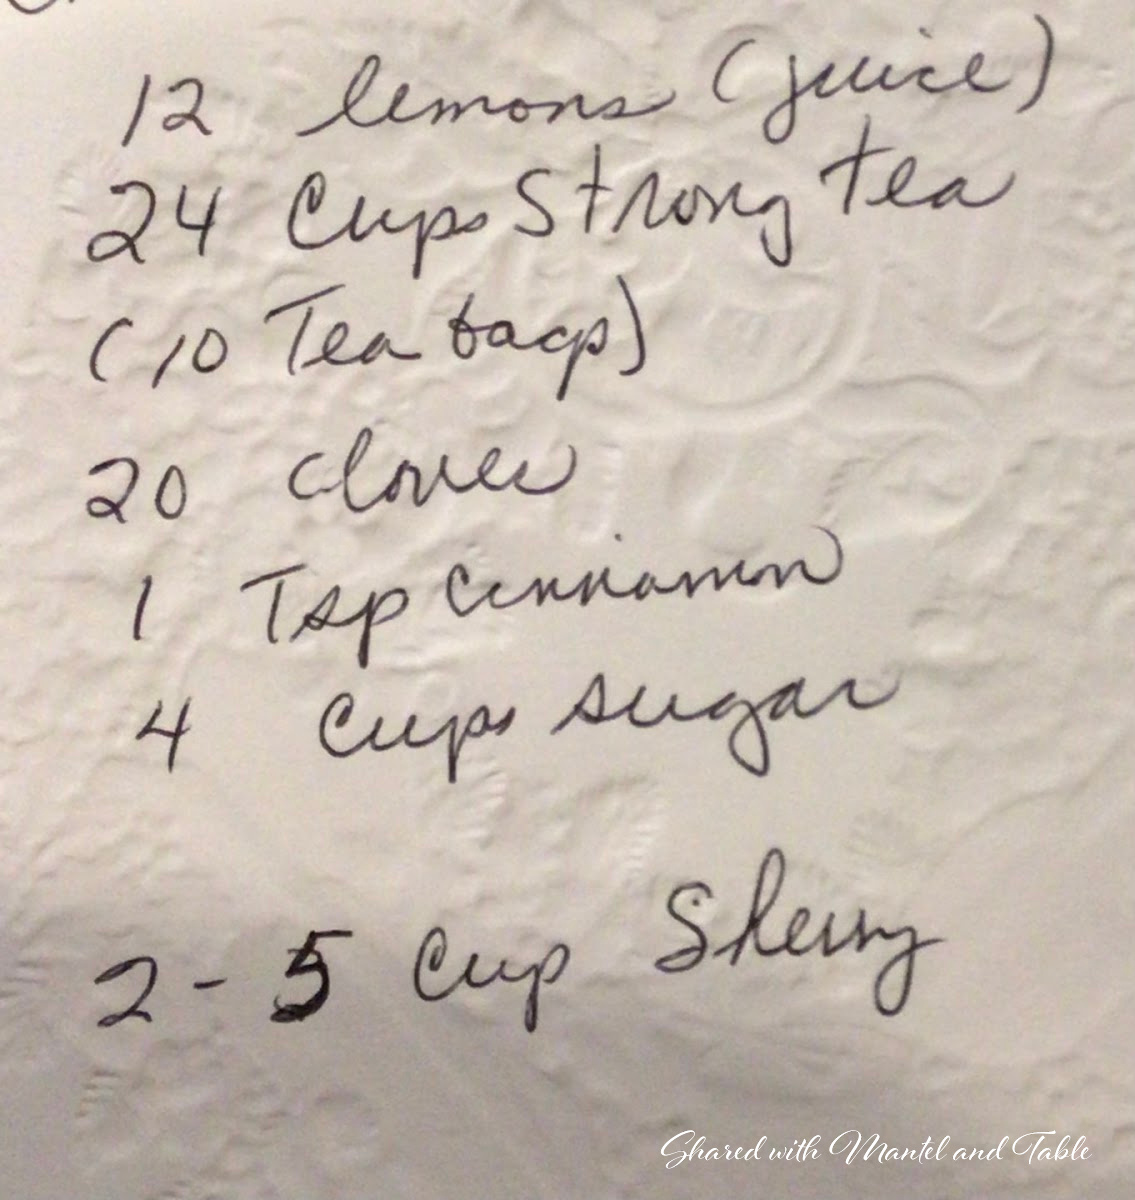 12 lemons (juice)
24 Cups Strong Tea
(10 Tea bags)
20 cloves
1 Tsp Cinnamon
4 Cups sugar
2-5 Cup Sherry
Shared with Mantel and Table